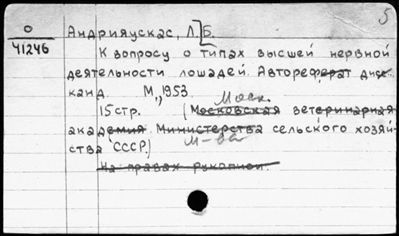 5
О
41246
Андрияускас, Л. Б.
К вопросу о типах высшей нервной
деятельности лошадей. Автореферат дис.
канд. М., 1953.
Моск.
15 стр. (Московская ветеринарная
академия Министерства сельского хозяй-
М-ва
ства СССР.)
На правах рукописи.